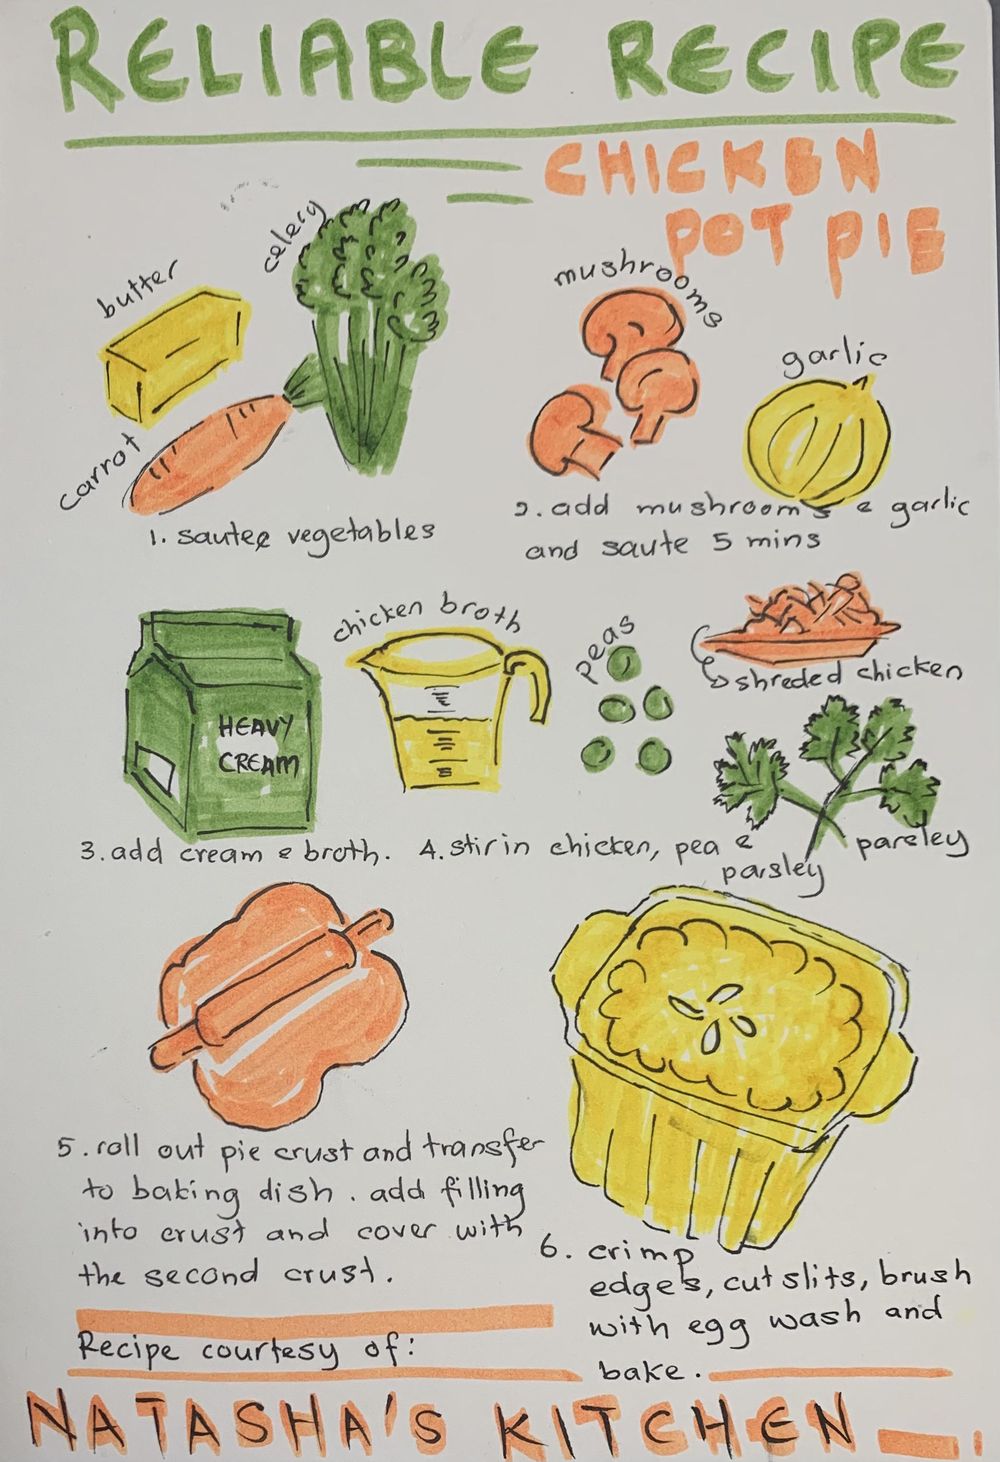 RELIABLE RECIPE
CHICKEN
POT PIE
celery
butter
carrot
mushrooms
garlic
1. sautee vegetables
2. add mushrooms & garlic
and saute 5 mins
HEAVY
CREAM
chicken broth
peas
shreded chicken
parsley
3. add cream & broth.
4. stir in chicken, pea &
parsley
5. roll out pie crust and transfer
to baking dish. add filling
into crust and cover with
the second crust.
6. crimp
edges, cut slits, brush
with egg wash and
bake.
Recipe courtesy of:
NATASHA'S KITCHEN